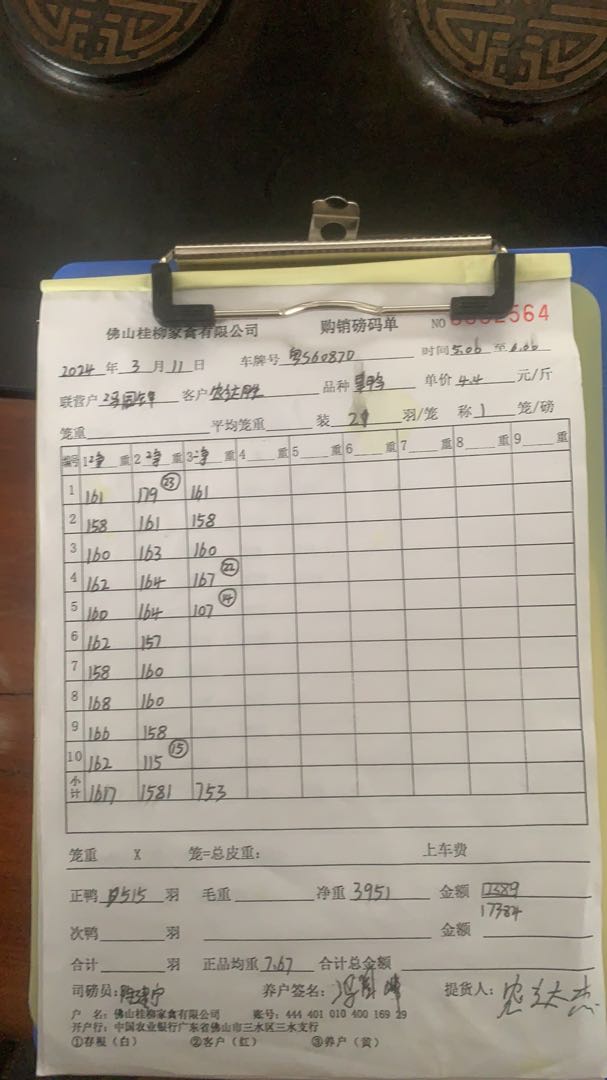 佛山桂柳家禽有限公司 购销磅码单 NO 2564
2024 年 3 月 11 日 车牌号 粤S60870 时间 5.06 至 6.06
联营户 客户 品种 单价 4.4 元/斤
笼重 平均笼重 装 21 羽/笼 称 1 笼/磅
编号 1 净 重 2 净 重 3 净 重 4 重 5 重 6 重 7 重 8 重 9 重
1 161 179 ㉓ 161
2 158 161 158
3 160 163 160
4 162 164 167 ㉒
5 160 164 107 ⑭
6 162 157
7 158 160
8 168 160
9 166 158
10 162 115 ⑮
小计 1617 1581 753
笼重 X 笼=总皮重: 上车费
正鸭 515 羽 毛重 净重 3951 金额
17384
次鸭 羽 金额
合计 羽 正品均重 7.67 合计总金额
司磅员: 养户签名: 提货人:
户 名: 佛山桂柳家禽有限公司 账号: 444 401 010 400 169 29
开户行: 中国农业银行广东省佛山市三水区三水支行
①存根(白) ②客户(红) ③养户(黄)